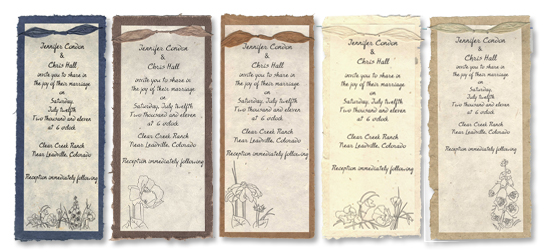 Jennifer Condon
&
Chris Hall
invite you to share in
the joy of their marriage
on
Saturday,
July twelfth
Two thousand and eleven
at 6 o'clock
Clear Creek Ranch
Near Leadville, Colorado
Reception immediately following
Jennifer Condon
&
Chris Hall
invite you to share in
the joy of their marriage
on
Saturday, July twelfth
Two thousand and eleven
at 6 o'clock
Clear Creek Ranch
Near Leadville, Colorado
Reception immediately following
Jennifer Condon
&
Chris Hall
invite you to share in
the joy of their marriage
on
Saturday, July twelfth
Two thousand and eleven
at 6 o'clock
Clear Creek Ranch
Near Leadville, Colorado
Reception immediately following
Jennifer Condon
&
Chris Hall
invite you to share in
the joy of their marriage
on
Saturday,
July twelfth
Two thousand and eleven
at 6 o'clock
Clear Creek Ranch
Near Leadville, Colorado
Reception immediately following
Jennifer Condon
&
Chris Hall
invite you to share in
the joy of their marriage
on
Saturday, July twelfth
Two thousand and eleven
at 6 o'clock
Clear Creek Ranch
Near Leadville, Colorado
Reception immediately following